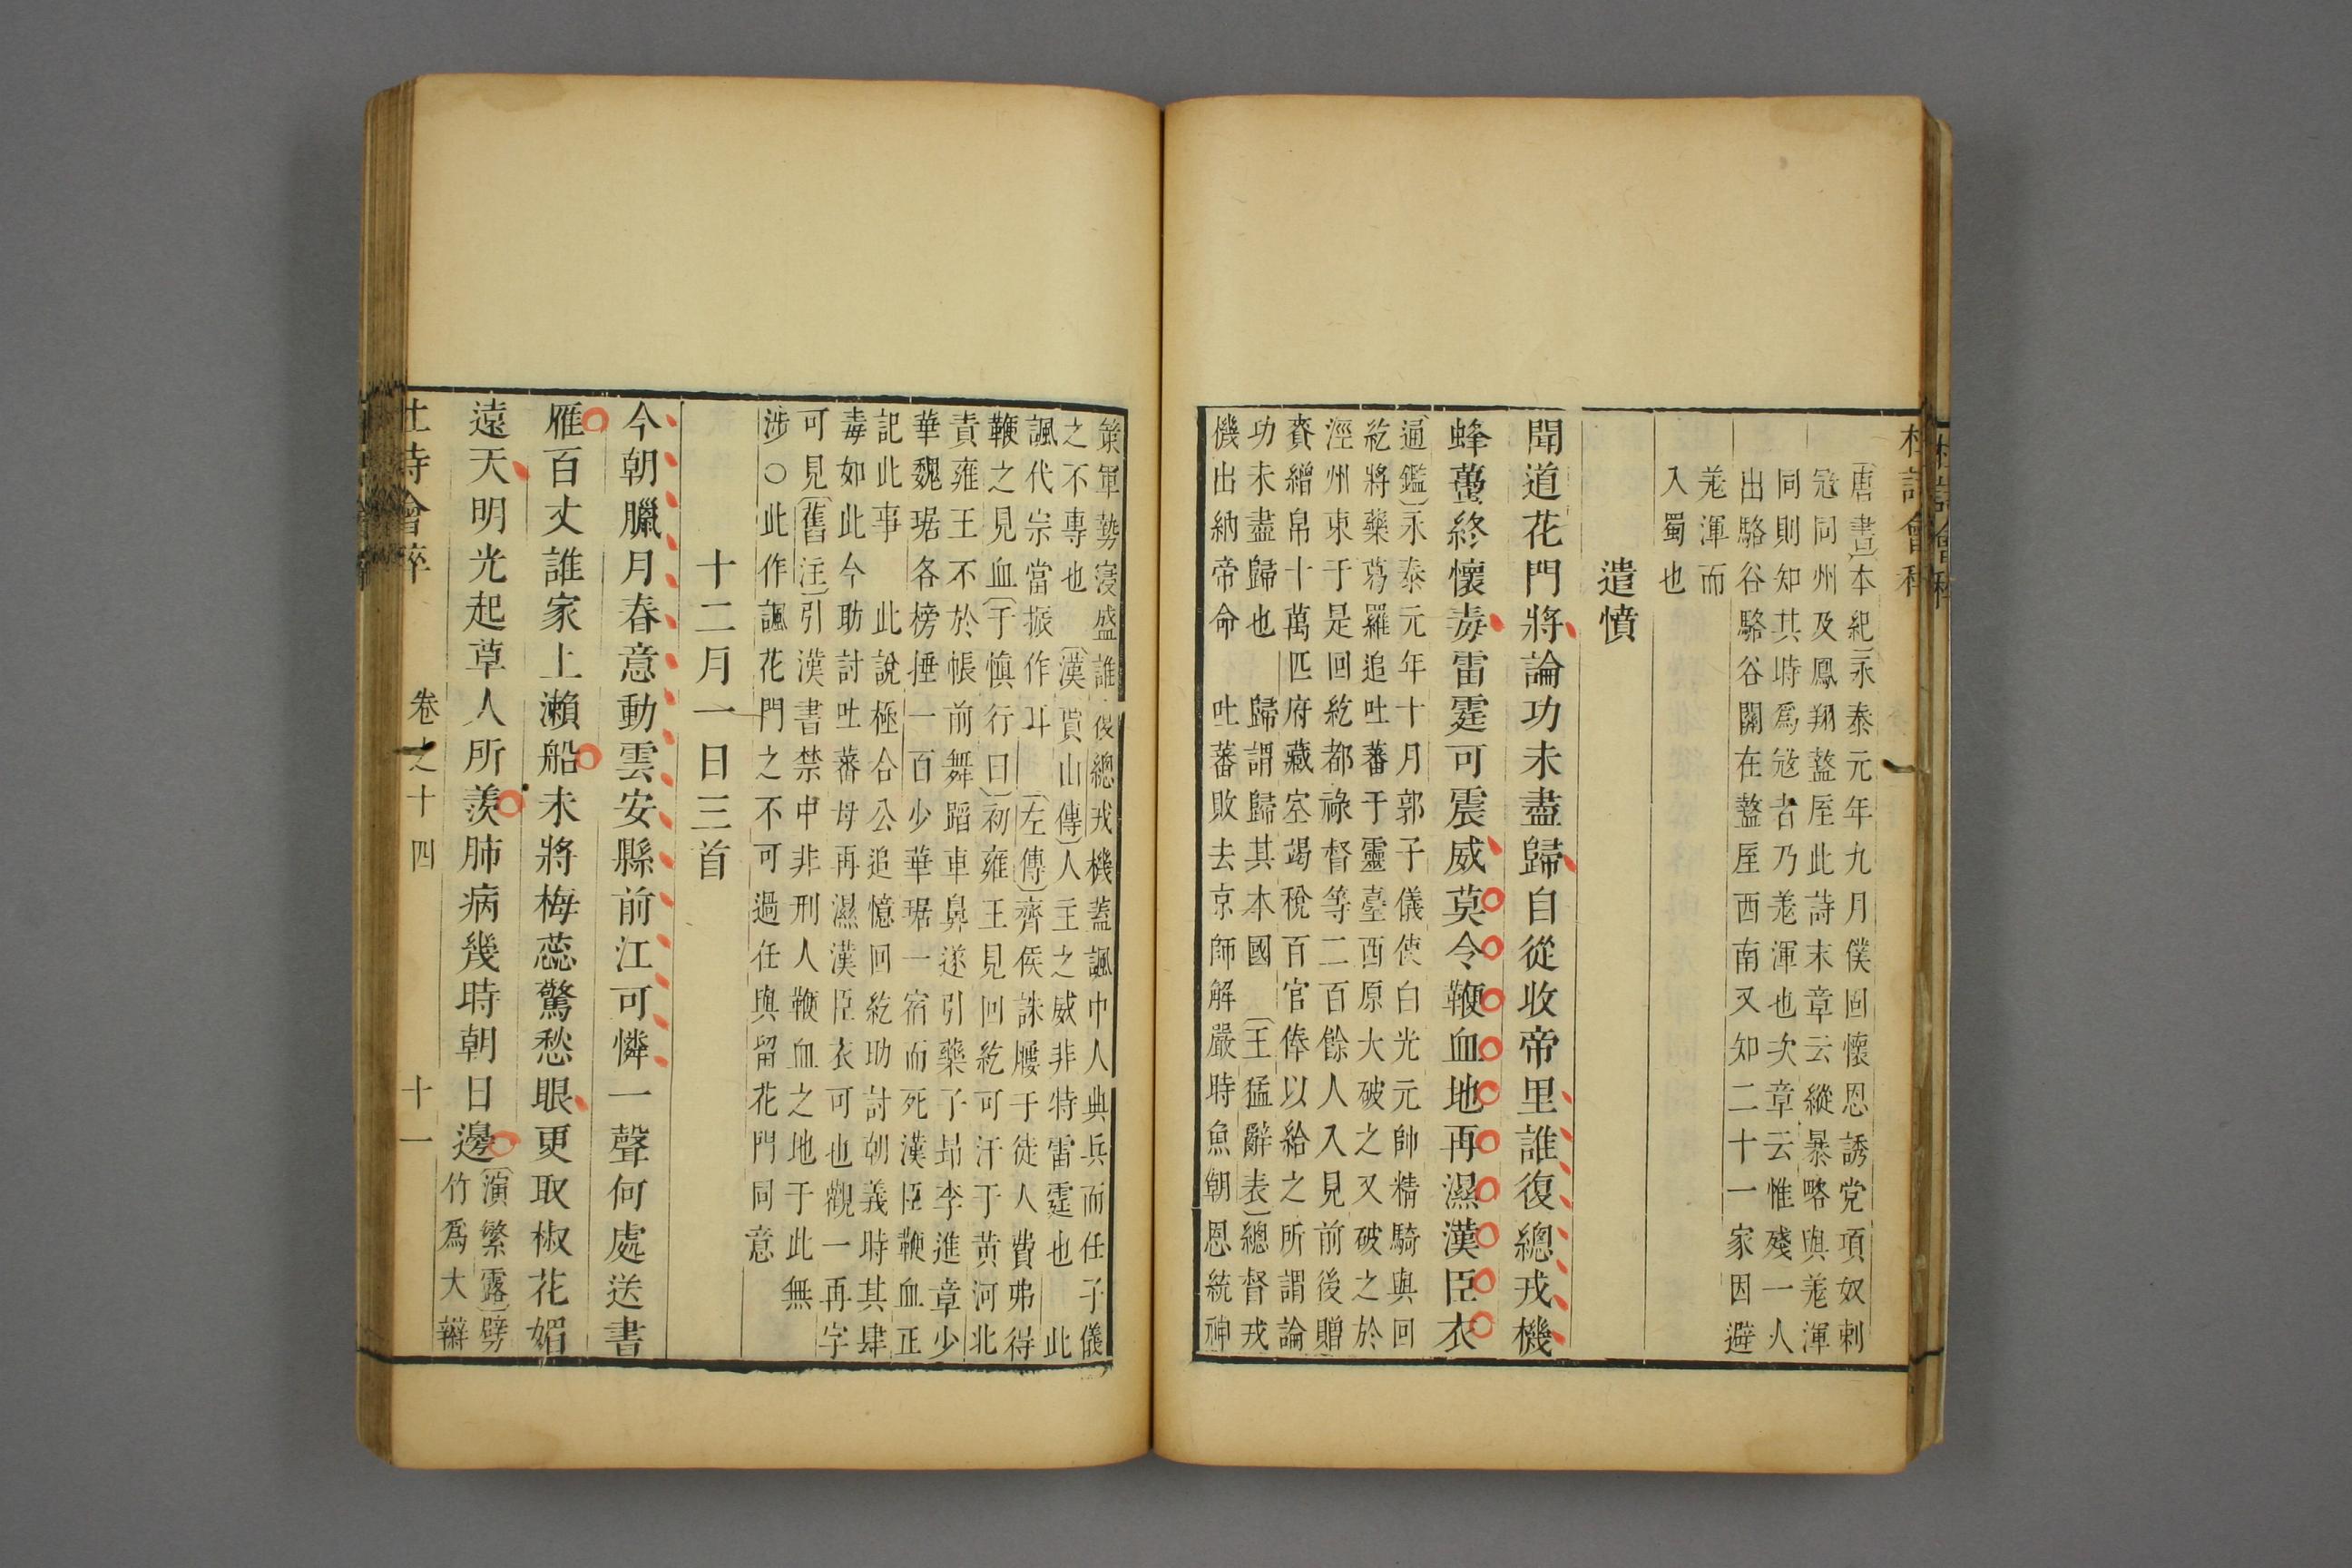 唐書本紀永泰元年九月僕固懷恩誘党項奴剌
寇同州及鳳翔盩厔此詩末章云縱暴略與羗渾
同則知其時爲寇者乃羗渾也次章云惟殘一人
出駱谷駱谷關在盩厔西南又知二十一家因避
羗渾而
入蜀也
遣憤
聞道花門將論功未盡歸自從收帝里誰復總戎機
蜂蠆終懷毒雷霆可震威莫令鞭血地再濕漢臣衣
通鑑永泰元年十月郭子儀使白光元帥精騎與回
紇將藥葛羅追吐蕃于靈臺西原大破之又破之於
涇州東于是回紇都祿督等二百餘人入見前後贈
賚繒帛十萬匹府藏空竭稅百官俸以給之所謂論
功未盡歸也 歸謂歸其本國 王猛辭表總督戎
機出納帝命 吐蕃敗去京師解嚴時魚朝恩統神
策軍勢寖盛誰復總戎機蓋諷中人典兵而任子儀
之不專也 漢賈山傳人主之威非特雷霆也 此
諷代宗當振作耳 左傳齊侯誅屨于徒人費弗得
鞭之見血于愼行曰初雍王見回紇可汗于黃河北
責雍王不於帳前舞蹈車鼻遂引藥子昻李進章少
華魏琚各榜捶一百少華琚一宿而死漢臣鞭血正
記此事 此說極合公追憶回紇助討朝義時其肆
毒如此今助討吐蕃毋再濕漢臣衣可也觀一再字
可見舊注引漢書禁中非刑人鞭血之地于此無
涉○此作諷花門之不可過任與留花門同意
十二月一日三首
今朝臘月春意動雲安縣前江可憐一聲何處送書
雁百丈誰家上瀨船未將梅蕊驚愁眼更取椒花媚
遠天明光起草人所羨肺病幾時朝日邊
演繁露劈
竹爲大辮
杜詩會稡 卷之十四 十一